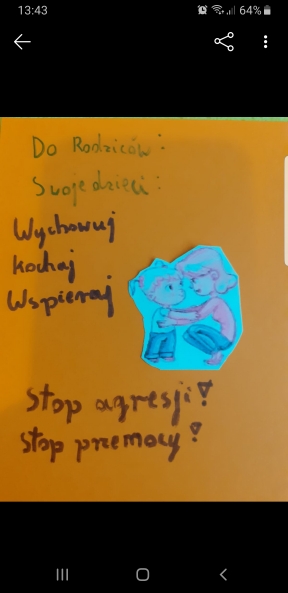 13:43
64%
Do Rodziców:
Swoje dzieci:
Wychowuj
kochaj
Wspieraj
Stop agresji!
Stop przemocy!